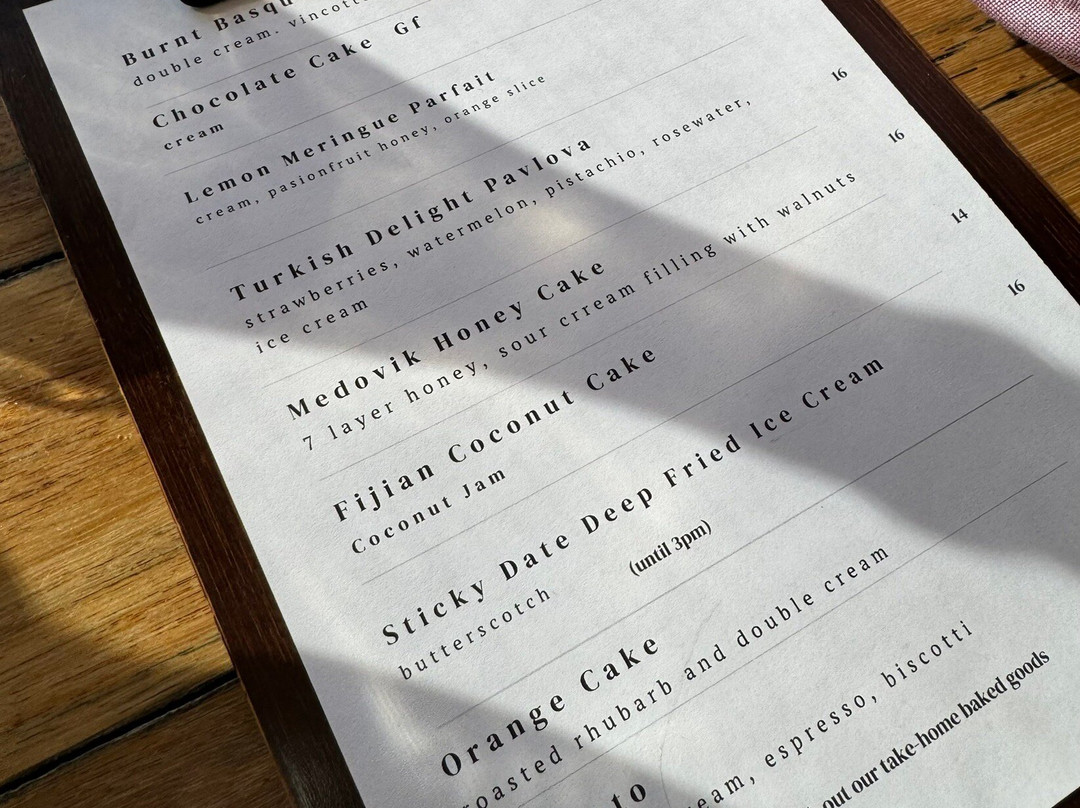 Burnt Basqu
double cream. vincott
Chocolate Cake Gf
cream
Lemon Meringue Parfait
cream, pasionfruit honey, orange slice
16
Turkish Delight Pavlova
strawberries, watermelon, pistachio, rosewater,
ice cream
16
Medovik Honey Cake
7 layer honey, sour crream filling with walnuts
14
Fijian Coconut Cake
Coconut Jam
16
Sticky Date Deep Fried Ice Cream
butterscotch (until 3pm)
Orange Cake
roasted rhubarb and double cream
to
eam, espresso, biscotti
out our take-home baked goods